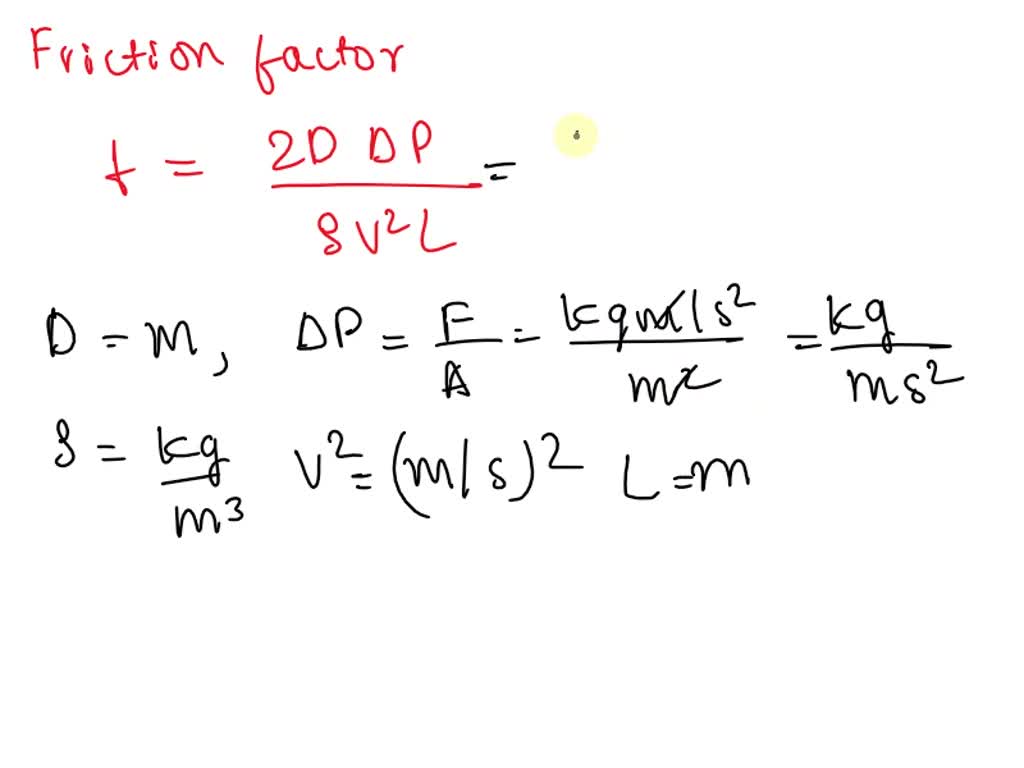 Friction factor
f = 2D ΔP / ρ v² L =
D = m, ΔP = F / A = kg m / s² / m² = kg / m s²
ρ = kg / m³ v² = (m/s)² L = m